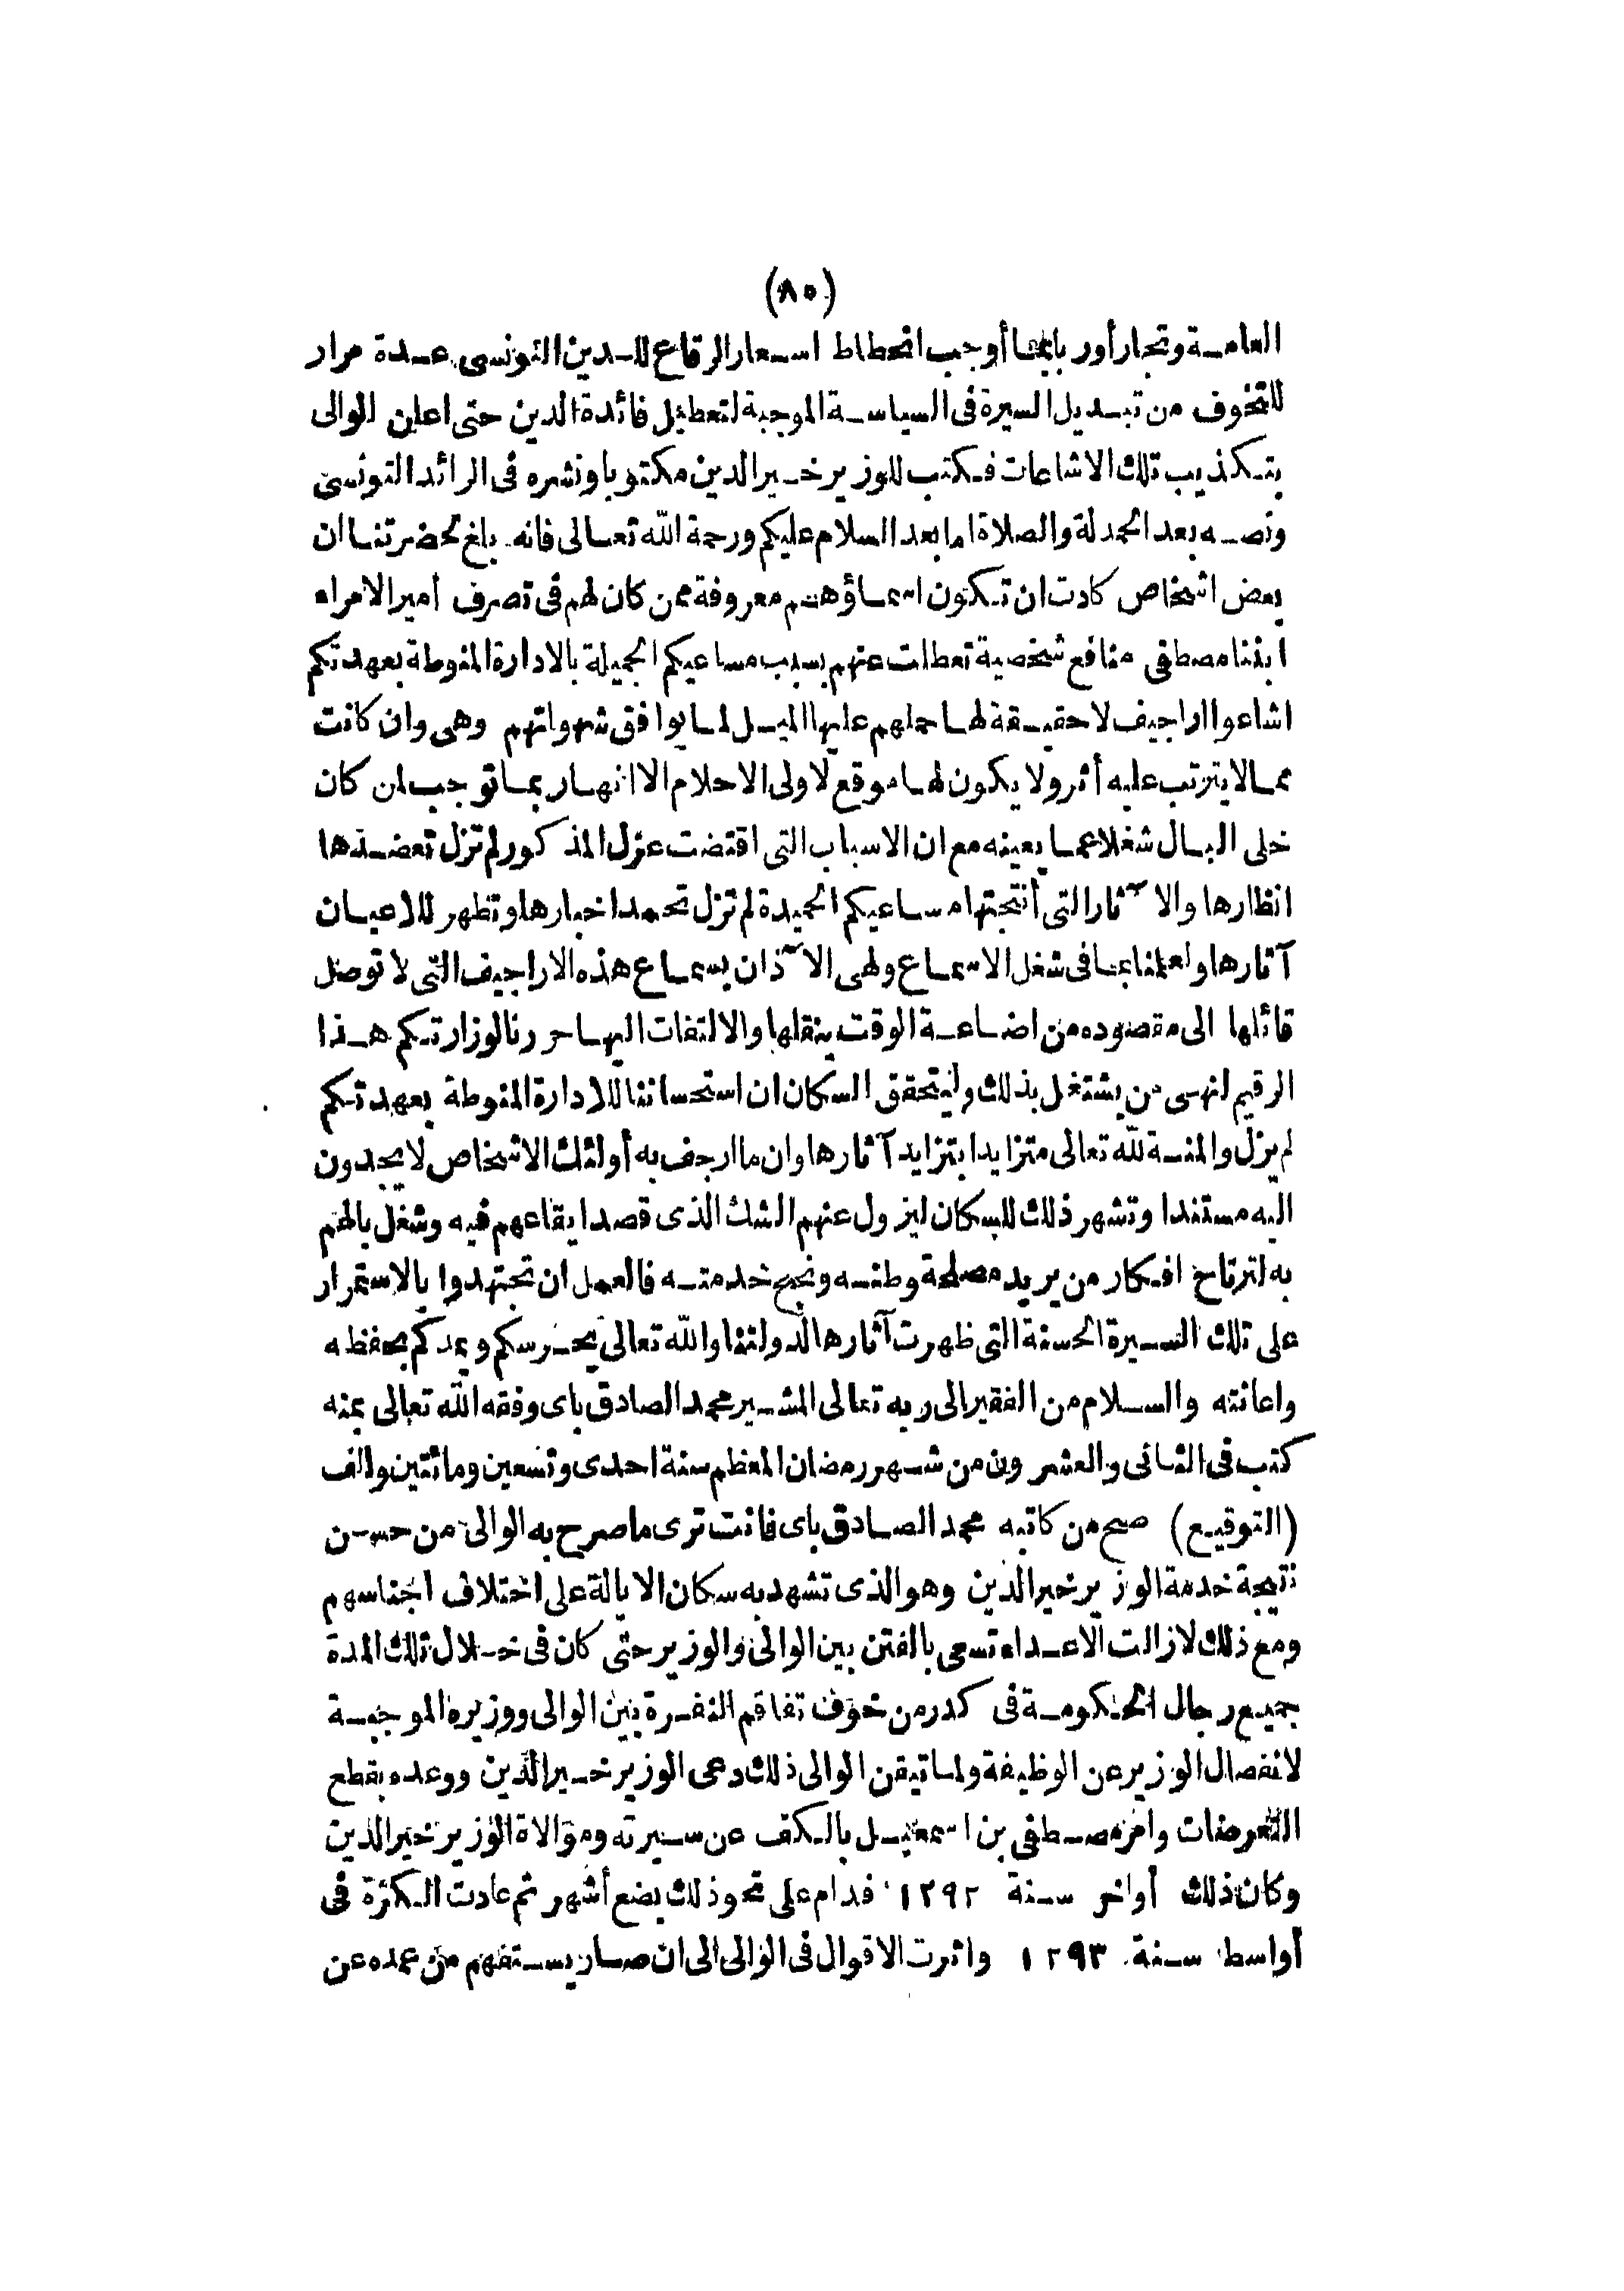 (٨٥)
العامة وتجار أوربا بما أوجب انحطاط اسعار الرقاع للدين التونسى عدة مرار
للتخوف من تبديل السيرة فى السياسة الموجبة لتعطيل فائدة الدين حتى اعلن الوالى
بتكذيب تلك الاشاعات فكتب للوزير خير الدين مكتوبا ونشره فى الرائد التونسى
ونصه بعد الحمدلة والصلاة اما بعد السلام عليكم ورحمة الله تعالى فانه بلغ لحضرتنا ان
بعض اشخاص كادت ان تكون اسماؤهم معروفة ممن كان لهم فى تصرف امير الامراء
ابننا مصطفى منافع شخصية تعطلت عنهم بسبب مساعيكم الجميلة بالادارة المنوطة بعهدتكم
اشاعوا اراجيف لا حقيقة لها حملهم عليها الميل لما يوافق شهواتهم وهى وان كانت
مما لا يترتب عليه أثر ولا يكون لها موقع لاولى الاحلام الا انها ربما توجب لمن كان
خلى البال شغلا عما يعينه مع ان الاسباب التى اقتضت عزل المذكور لم تزل تعضدها
انظارها والآثار التى أنتجتها مساعيكم الحميدة لم تزل تحمد اخبارها وتظهر للاعيان
آثارها ولعلمنا بما فى شغل الاسماع ولهى الآذان بسماع هذه الاراجيف التى لا توصل
قائلها الى مقصوده من اضاعة الوقت بنقلها والالتفات اليها حررنا لوزارتكم هذا
الرقيم لنهى من يشتغل بذلك وليتحقق السكان ان استحساننا للادارة المنوطة بعهدتكم
لم يزل والمنة لله تعالى متزايدا بتزايد آثارها وان ما ارجف به أولئك الاشخاص لا يجدون
اليه مستندا وتشهر ذلك للسكان ليزول عنهم الشك الذى قصد ايقاعهم فيه وشغل بالهم
به لترتاح افكار من يريد مصلحة وطنه ونجح خدمته فالعمل ان تجتهدوا بالاستمرار
على تلك السيرة الحسنة التى ظهرت آثارها لدولتنا والله تعالى يحرسكم ويمدكم بحفظه
واعانته والسلام من الفقير الى ربه تعالى المشير محمد الصادق باى وفقه الله تعالى بمنه
كتب فى الثانى والعشرون من شهر رمضان المعظم سنة احدى وتسعين ومائتين والف
(التوقيع) صح من كاتبه محمد الصادق باى فانت ترى ما صرح به الوالى من حسن
نتيجة خدمة الوزير خير الدين وهو الذى تشهد به سكان الايالة على اختلاف اجناسهم
ومع ذلك لا زالت الاعداء تسعى بالفتن بين الوالى والوزير حتى كان فى خلال تلك المدة
جميع رجال الحكومة فى كدر من خوف تفاقم النفرة بين الوالى ووزيره الموجبة
لانفصال الوزير عن الوظيفة ولما تيقن الوالى ذلك دعى الوزير خير الدين ووعده بقطع
التعرضات وامر مصطفى بن اسمعيل بالكف عن سيرته وموالاة الوزير خير الدين
وكان ذلك أواخر سنة ١٢٩٢ فدام على نحو ذلك بضع أشهر ثم عادت الكرة فى
أواسط سنة ١٢٩٣ واثرت الاقوال فى الوالى الى ان صار يستفهم من عمده عن